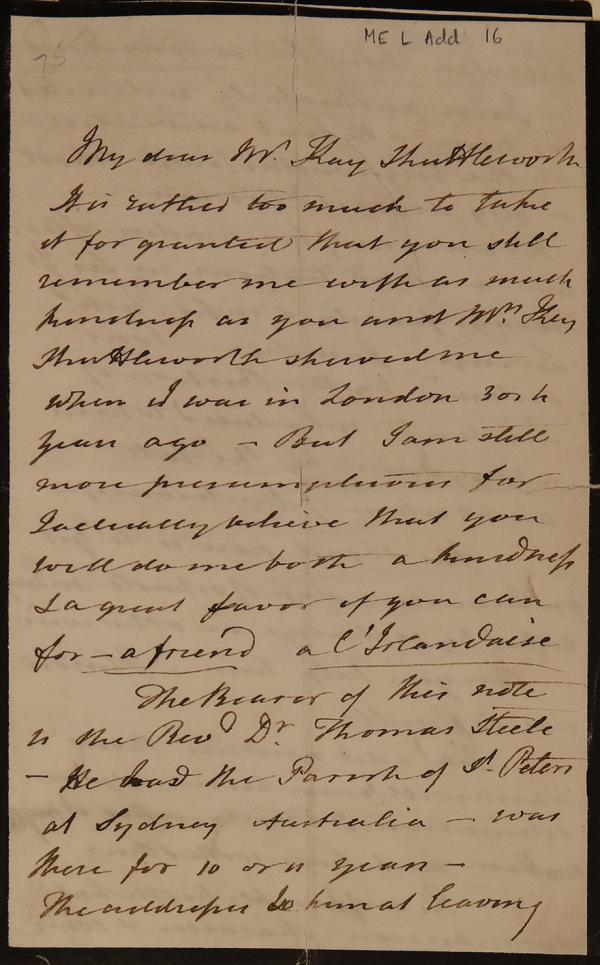 ME L Add 16
75
My dear Mr. Kay Shuttleworth
It is rather too much to take
it for granted that you still
remember me with as much
kindness as you and Mrs. Kay
Shuttleworth showed me
when I was in London 3 or 4
years ago – But I am still
more presumptuous for
I actually believe that you
will do me both a kindness
& a great favor if you can
for – a friend a l'Irlandaise
The Bearer of this note
is the Revd. Dr. Thomas Steele
– He had the Parish of St. Peters
at Sydney Australia – was
there for 10 or 11 years –
The addresses to him at leaving